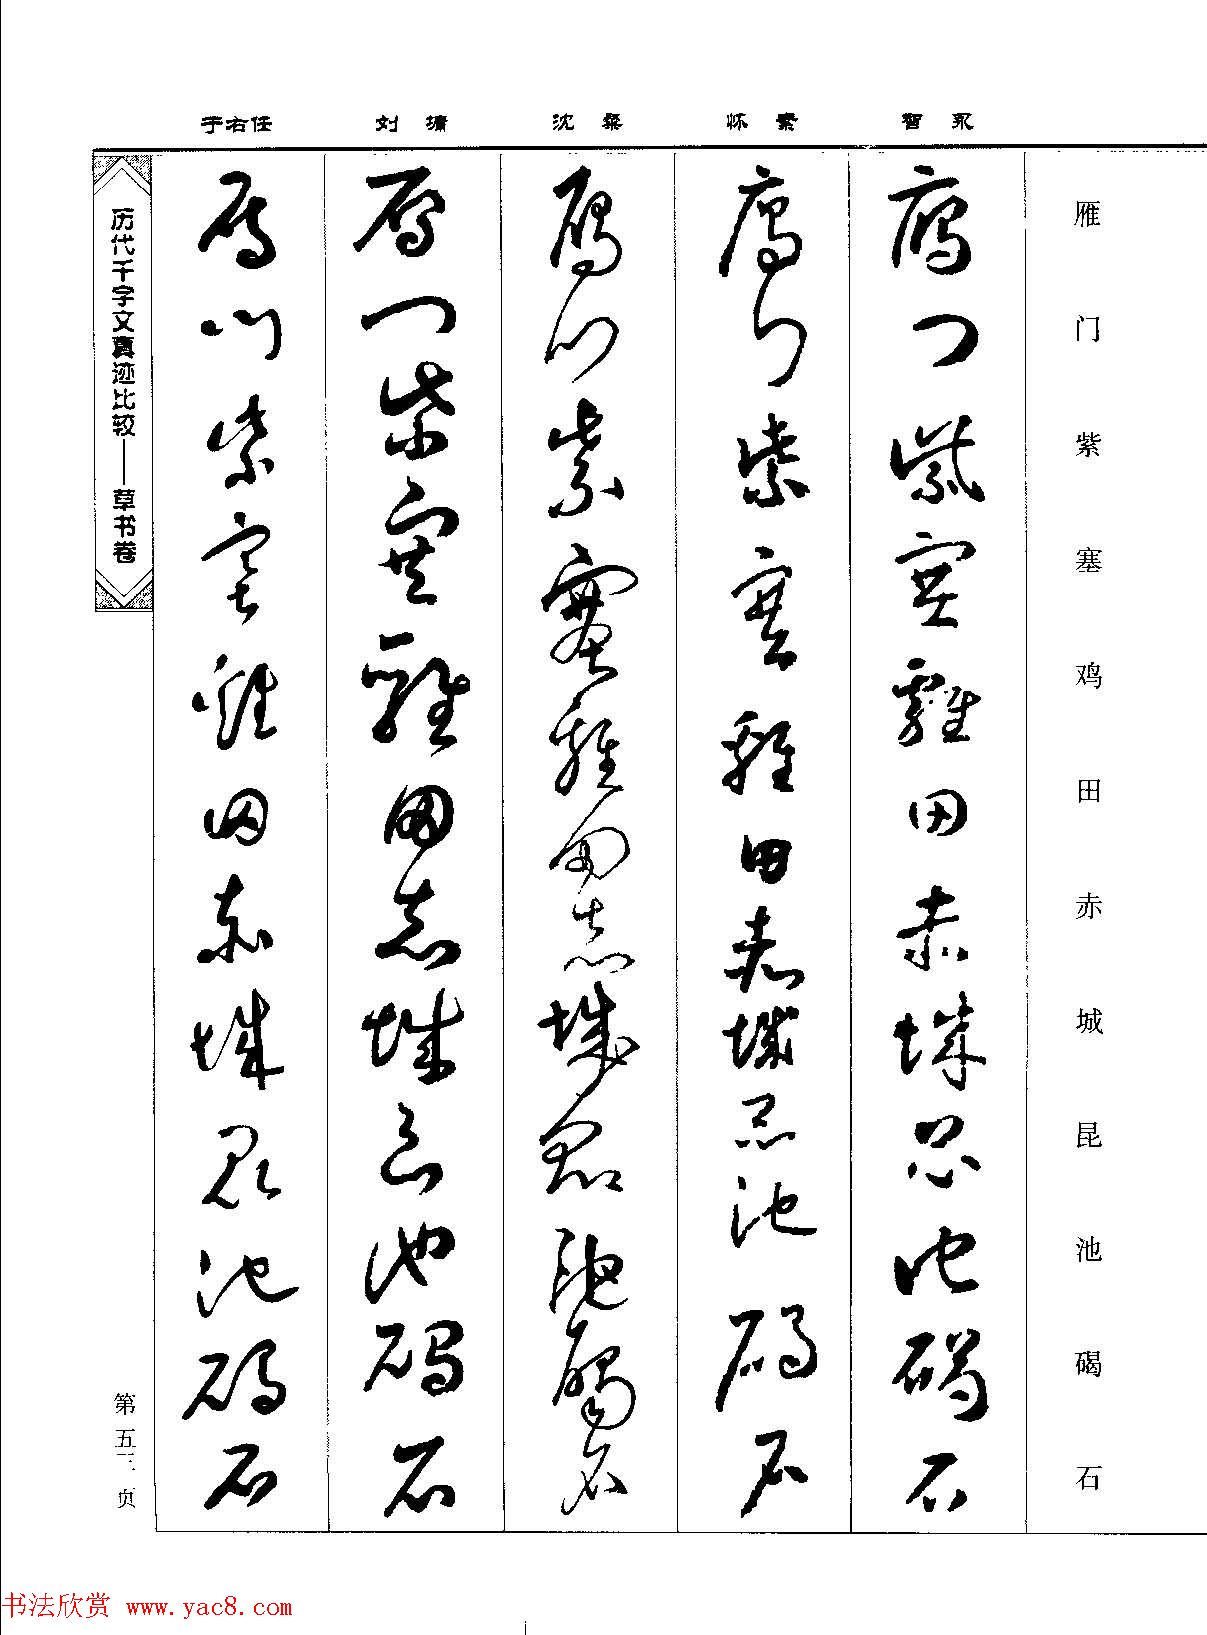 雁门紫塞鸡田赤城昆池碣石
智永
雁门紫塞鸡田赤城昆池碣石
怀素
雁门紫塞鸡田赤城昆池碣石
沈粲
雁门紫塞鸡田赤城昆池碣石
刘墉
雁门紫塞鸡田赤城昆池碣石
于右任
雁门紫塞鸡田赤城昆池碣石
历代千字文真迹比较——草书卷
第五三页
书法欣赏 www.yac8.com